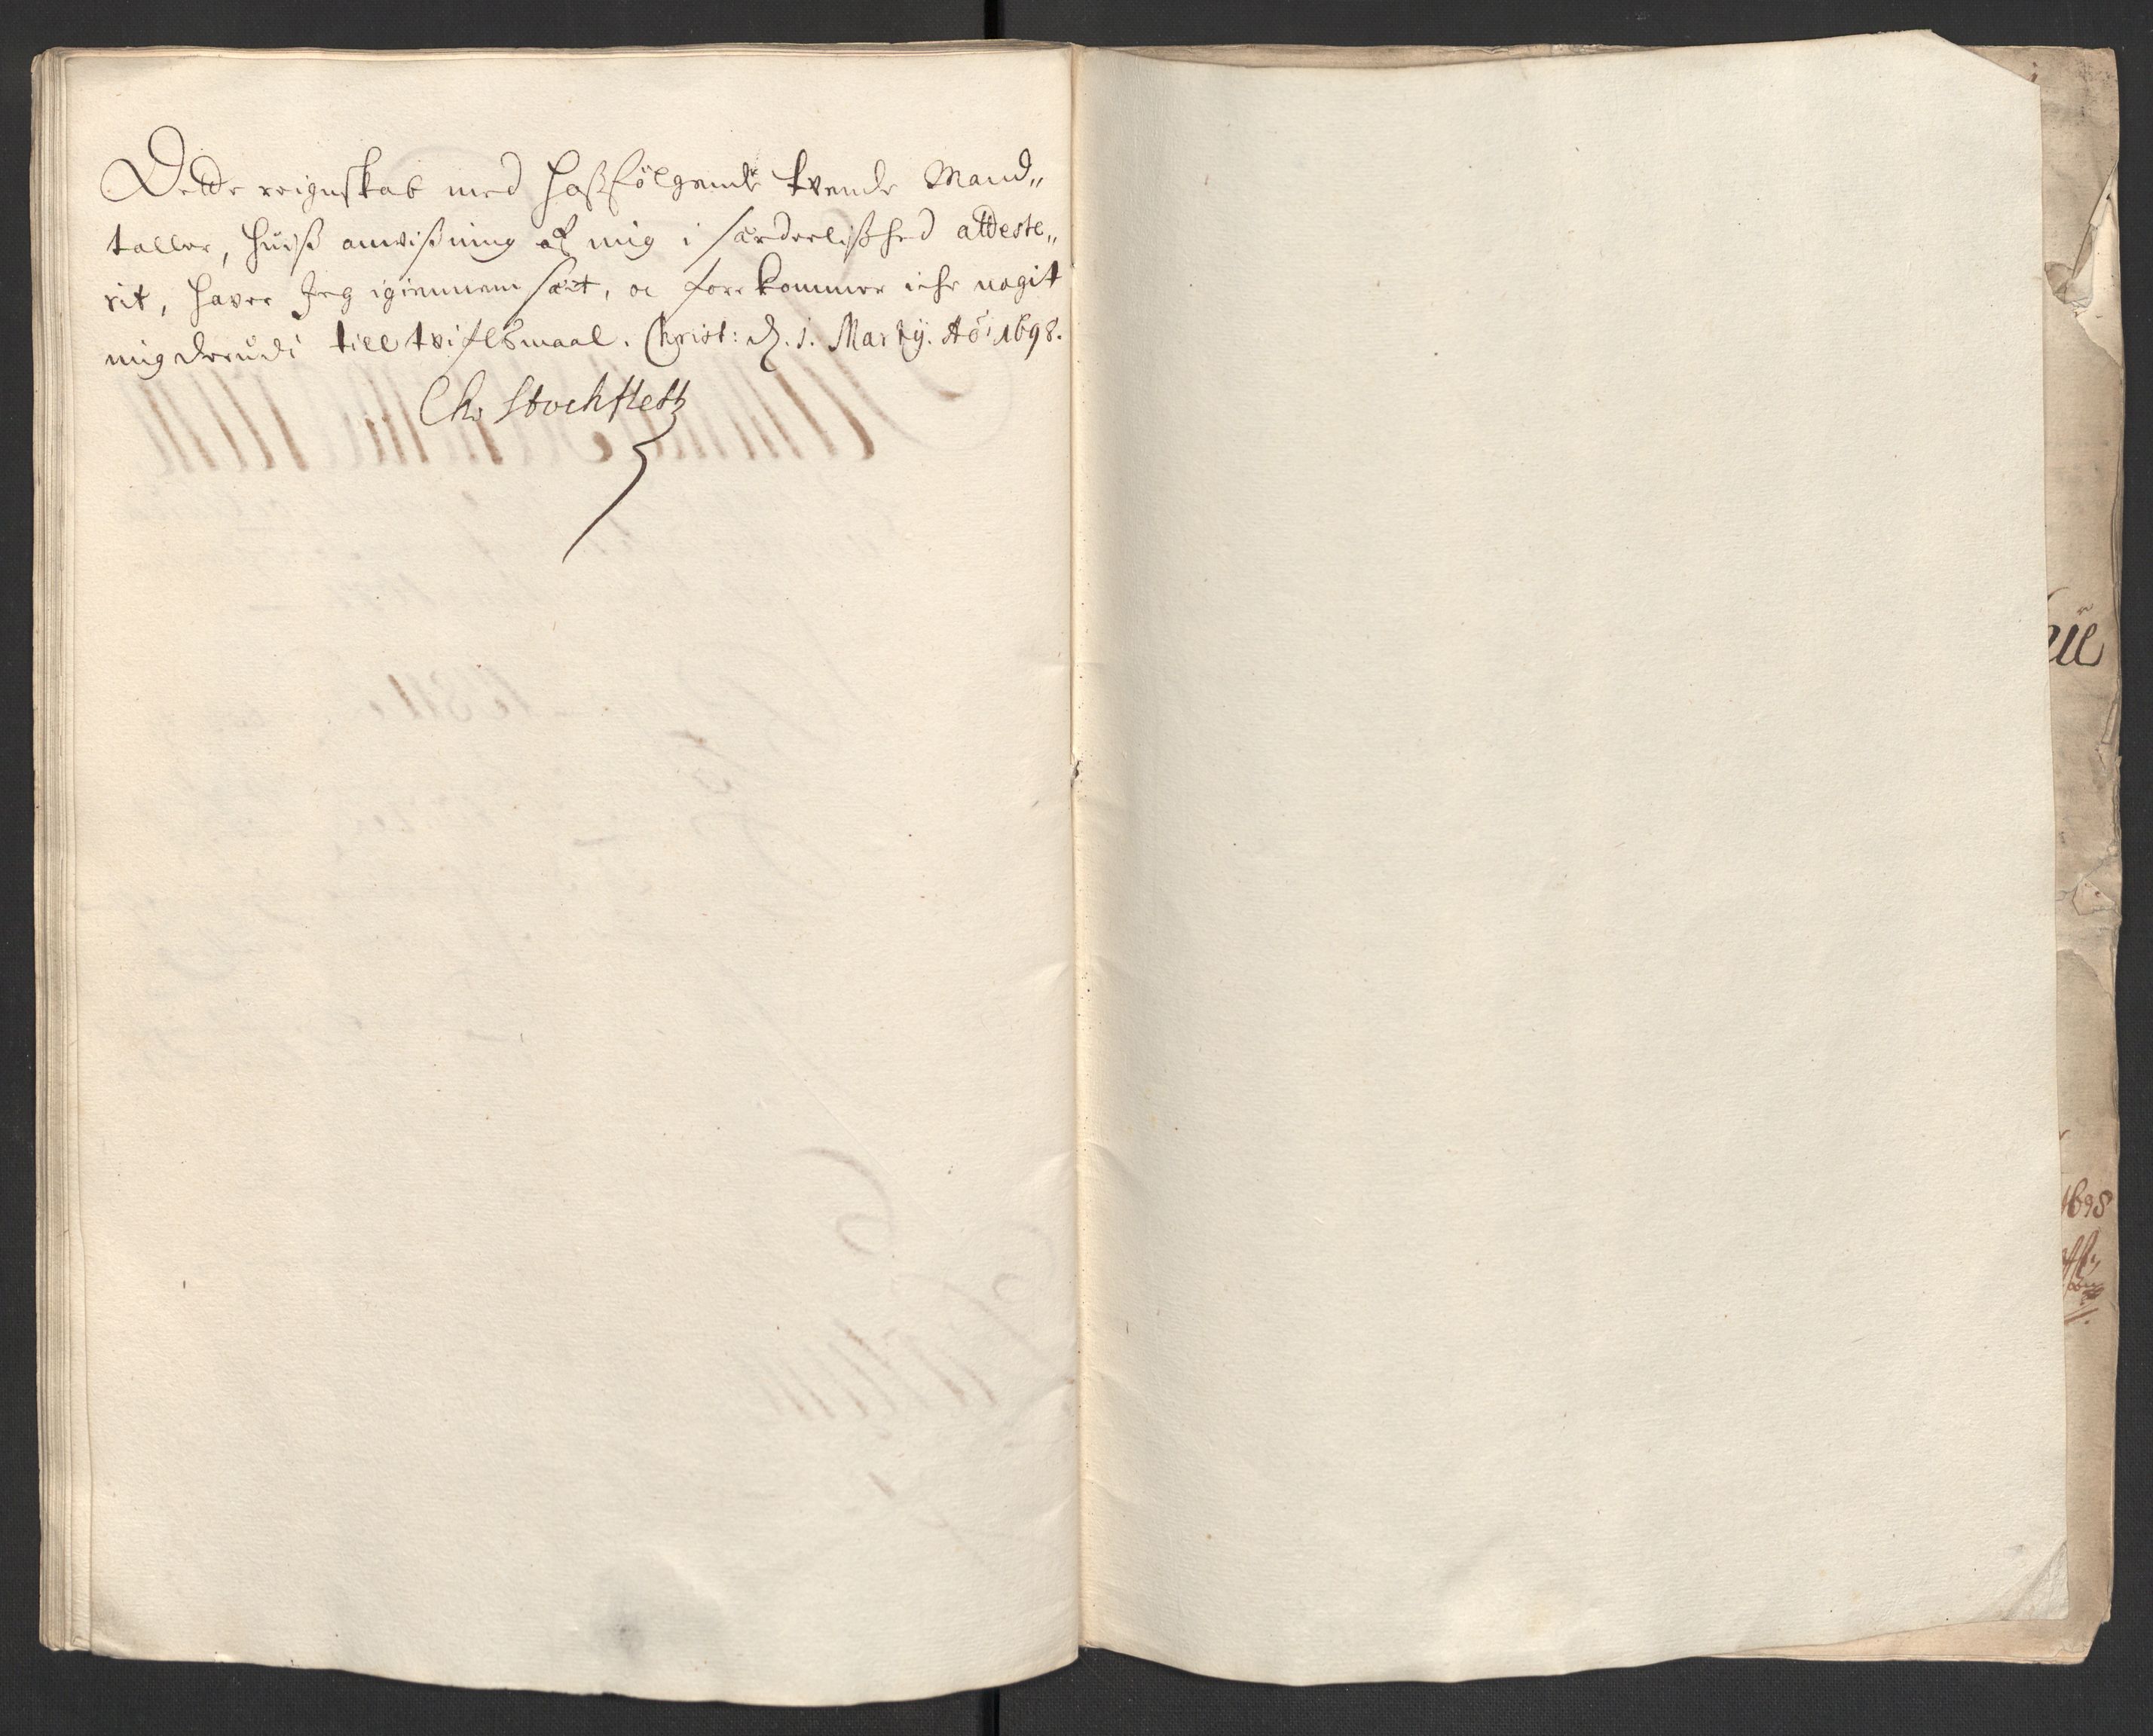 Dette reignskab med hosfølgende tvende Mand„
taller, huiß anvißning af mig i særdeelißhed atteste„
rit, haver Jeg igiennem seet, oc forekommer iche nogit
mig derudi till tvifelsmaal. Christ: d. 1. Martij. Ao: 1698.
Chr Stockfleth
1698